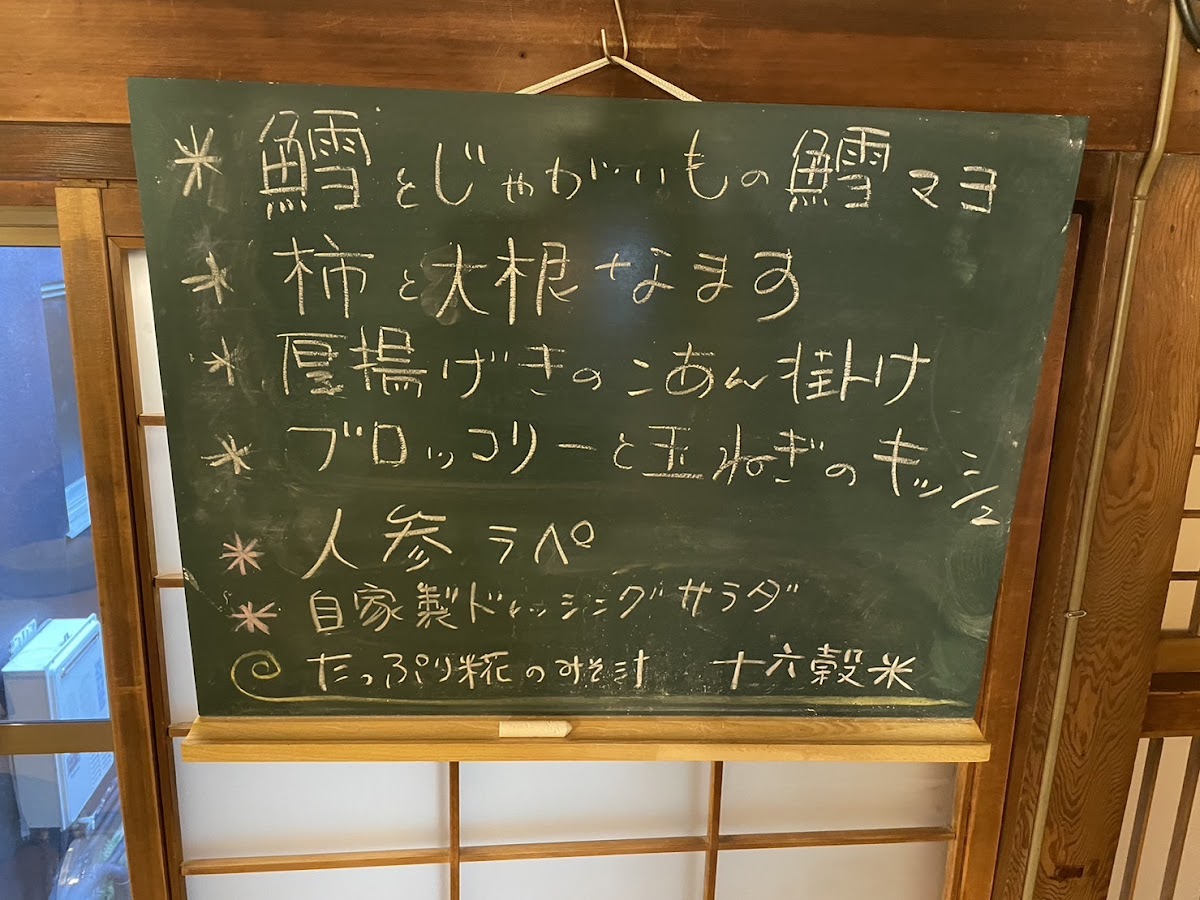 * 鱈とじゃがいもの鱈マヨ
* 柿と大根なます
* 厚揚げきのこあん掛け
* ブロッコリーと玉ねぎのキッシュ
* 人参ラペ
* 自家製ドレッシングサラダ
たっぷり糀のみそ汁 十六穀米